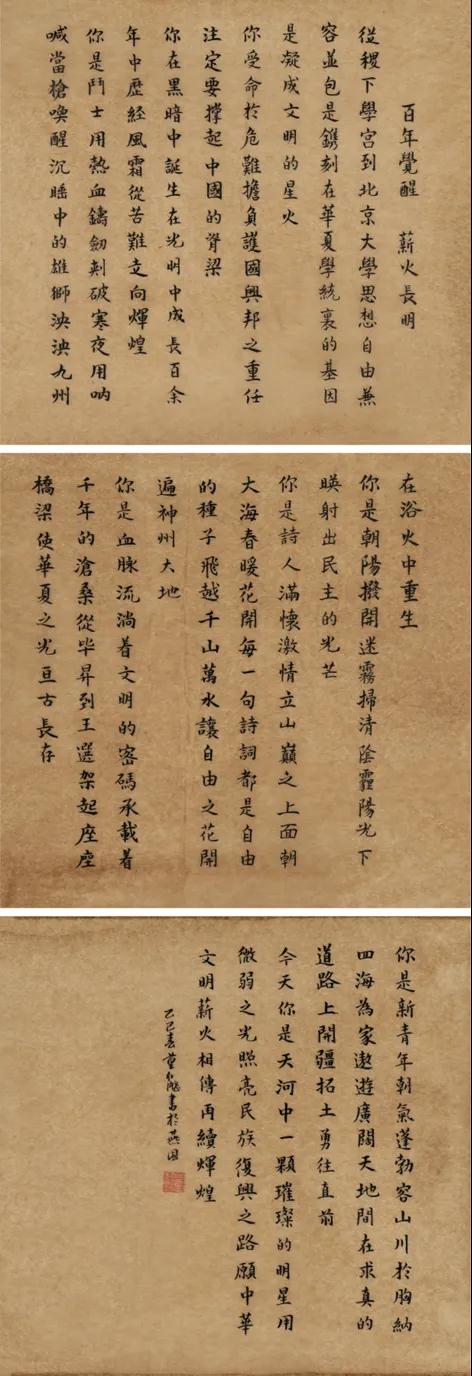 百年覺醒 薪火長明
從稷下學宮到北京大學思想自由兼
容並包是鐫刻在華夏學統裏的基因
是凝成文明的星火
你受命於危難擔負護國興邦之重任
注定要撐起中國的脊梁
你在黑暗中誕生在光明中成長百余
年中歷經風霜從苦難走向輝煌
你是鬥士用熱血鑄劍刺破寒夜用吶
喊當槍喚醒沉睡中的雄獅泱泱九州
在浴火中重生
你是朝陽撥開迷霧掃清陰霾陽光下
暎射出民主的光芒
你是詩人滿懷激情立山巔之上面朝
大海春暖花開每一句詩詞都是自由
的種子飛越千山萬水讓自由之花開
遍神州大地
你是血脉流淌着文明的密碼承載着
千年的滄桑從毕昇到王選架起座座
橋梁使華夏之光亘古長存
你是新青年朝氣蓬勃容山川於胸納
四海為家遨遊廣闊天地間在求真的
道路上開疆拓土勇往直前
今天你是天河中一顆璀璨的明星用
微弱之光照亮民族復興之路願中華
文明薪火相傳再續輝煌
乙巳春董書於燕園